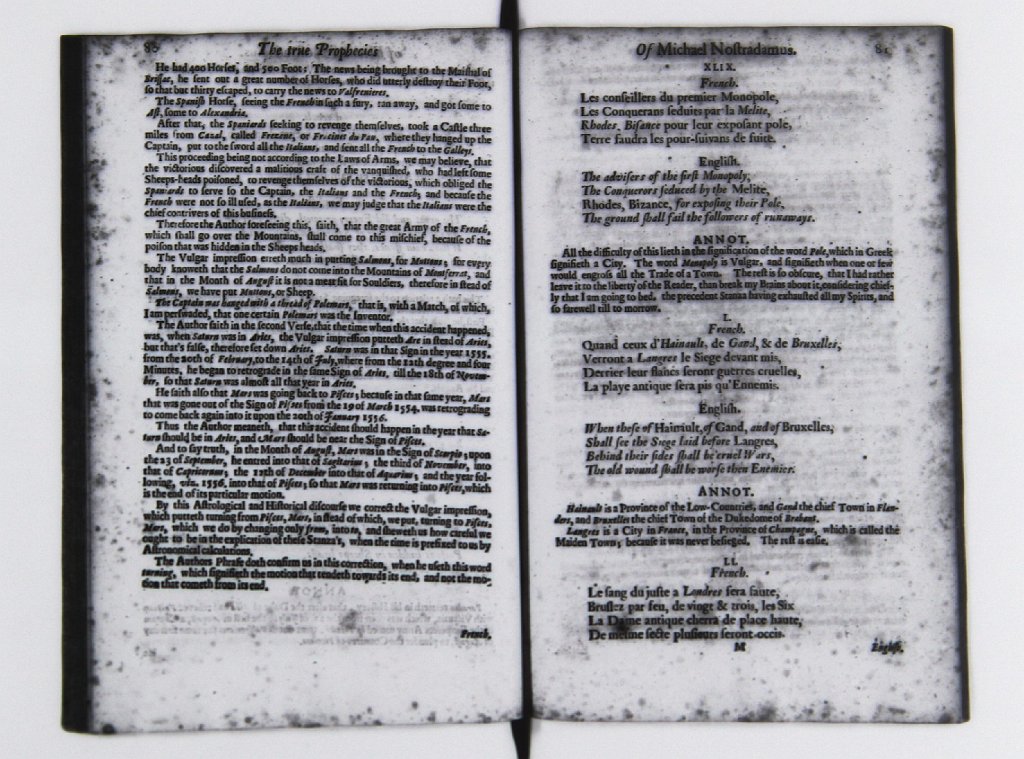 80 The true Prophecies
He had 400 Horses, and 500 Foot: The news being brought to the Maishal of
Brissat, he sent out a great number of Horses, who did utterly destroy their Foot,
so that but thirty escaped, to carry the news to Valfrenieres.
The Spanish Horse, seeing the French in such a fury, ran away, and got some to
Ast, some to Alexandria.
After that, the Spaniards seeking to revenge themselves, took a Castle three
miles from Cazal, called Frezene, or Fraines du Pau, where they hanged up the
Captain, put to the sword all the Italians, and sent all the French to the Galleys.
This proceeding being not according to the Laws of Arms, we may believe, that
the victorious discovered a malitious craft of the vanquished, who had left some
Sheeps-heads poisoned, to revenge themselves of the victorious, which obliged the
Spaniards to serve so the Captain, the Italians and the French, and because the
French were not so ill used, as the Italians, we may judge that the Italians were the
chief contrivers of this business.
Therefore the Author foreseeing this, saith, that the great Army of the French,
which shall go over the Mountains, shall come to this mischief, because of the
poison that was hidden in the Sheeps heads.
The Vulgar impression erreth much in putting Salmons, for Muttons; for every
body knoweth that the Salmons do not come into the Mountains of Montferrat, and
that in the Month of August it is not a meat fit for Souldiers, therefore in stead of
Salmons, we have put Muttons, or Sheep.
The Captain was hanged with a thread of Polemars, that is, with a Match, of which,
I am perswaded, that one certain Polemars was the Inventor.
The Author saith in the second Verse, that the time when this accident happened,
was, when Saturn was in Aries, the Vulgar impression putteth Arc in stead of Aries,
but that's false, therefore set down Aries. Saturn was in that Sign in the year 1555.
from the 20th of February, to the 14th of July, where from the 12th degree and four
Minutes, he began to retrograde in the same Sign of Aries, till the 18th of Novem-
ber, so that Saturn was almost all that year in Aries.
He saith also that Mars was going back to Pisces; because in that same year, Mars
that was gone out of the Sign of Pisces from the 19 of March 1554. was retrograding
to come back again into it upon the 20th of January 1556.
Thus the Author meaneth, that this accident should happen in the year that Sa-
turn should be in Aries, and Mars should be near the Sign of Pisces.
And to say truth, in the Month of August, Mars was in the Sign of Scorpio; upon
the 23 of September, he entred into that of Sagitarius; the third of November, into
that of Capricornus; the 12th of December into that of Aquarius; and the year fol-
lowing, viz. 1556, into that of Pisces; so that Mars was returning into Pisces, which
is the end of its particular motion.
By this Astrological and Historical discourse we correct the Vulgar impression,
which putteth turning from Pisces, Mars, in stead of which, we put, turning to Pisces,
Mars, which we do by changing only from, into to, and sheweth us how careful we
ought to be in the explication of these Stanza's, when the time is prefixed to us by
Astronomical calculations.
The Authors Phrase doth confirm us in this correction, when he useth this word
turning, which signifieth the motion that tendeth towards its end, and not the mo-
tion that cometh from its end.
French,
Of Michael Nostradamus. 81
XLIX.
French.
Les conseillers du premier Monopole,
Les Conquerans seduits par la Melite,
Rhodes, Bisance pour leur exposant pole,
Terre faudra les pour-suivans de fuite.
English.
The advisers of the first Monopoly,
The Conquerors seduced by the Melite,
Rhodes, Bizance, for exposing their Pole,
The ground shall fail the followers of runaways.
ANNOT.
All the difficulty of this lieth in the signification of the word Pole, which in Greek
signifieth a City. The word Monopoly is Vulgar, and signifieth when one or few
would engross all the Trade of a Town. The rest is so obscure, that I had rather
leave it to the liberty of the Reader, than break my Brains about it, considering chief-
ly that I am going to bed, the precedent Stanza having exhausted all my Spirits, and
so farewell till to morrow.
L.
French.
Quand ceux d'Hainault, de Gand, & de Bruxelles,
Verront a Langres le Siege devant mis,
Derrier leur flancs seront guerres cruelles,
La playe antique sera pis qu'Ennemis.
English.
When these of Hainault, of Gand, and of Bruxelles,
Shall see the Siege laid before Langres,
Behind their sides shall be cruel Wars,
The old wound shall be worse then Enemies.
ANNOT.
Hainault is a Province of the Low-Countries, and Gand the chief Town in Flan-
ders, and Bruxelles the chief Town of the Dukedome of Brabant.
Langres is a City of France, in the Province of Champagne, which is called the
Maiden Town; because it was never besieged. The rest is easie.
LI.
French.
Le sang du juste a Londres fera faute,
Bruslez par feu, de vingt & trois, les Six
La Dame antique cherra de place haute,
De mesme secte plusieurs seront occis.
M English.